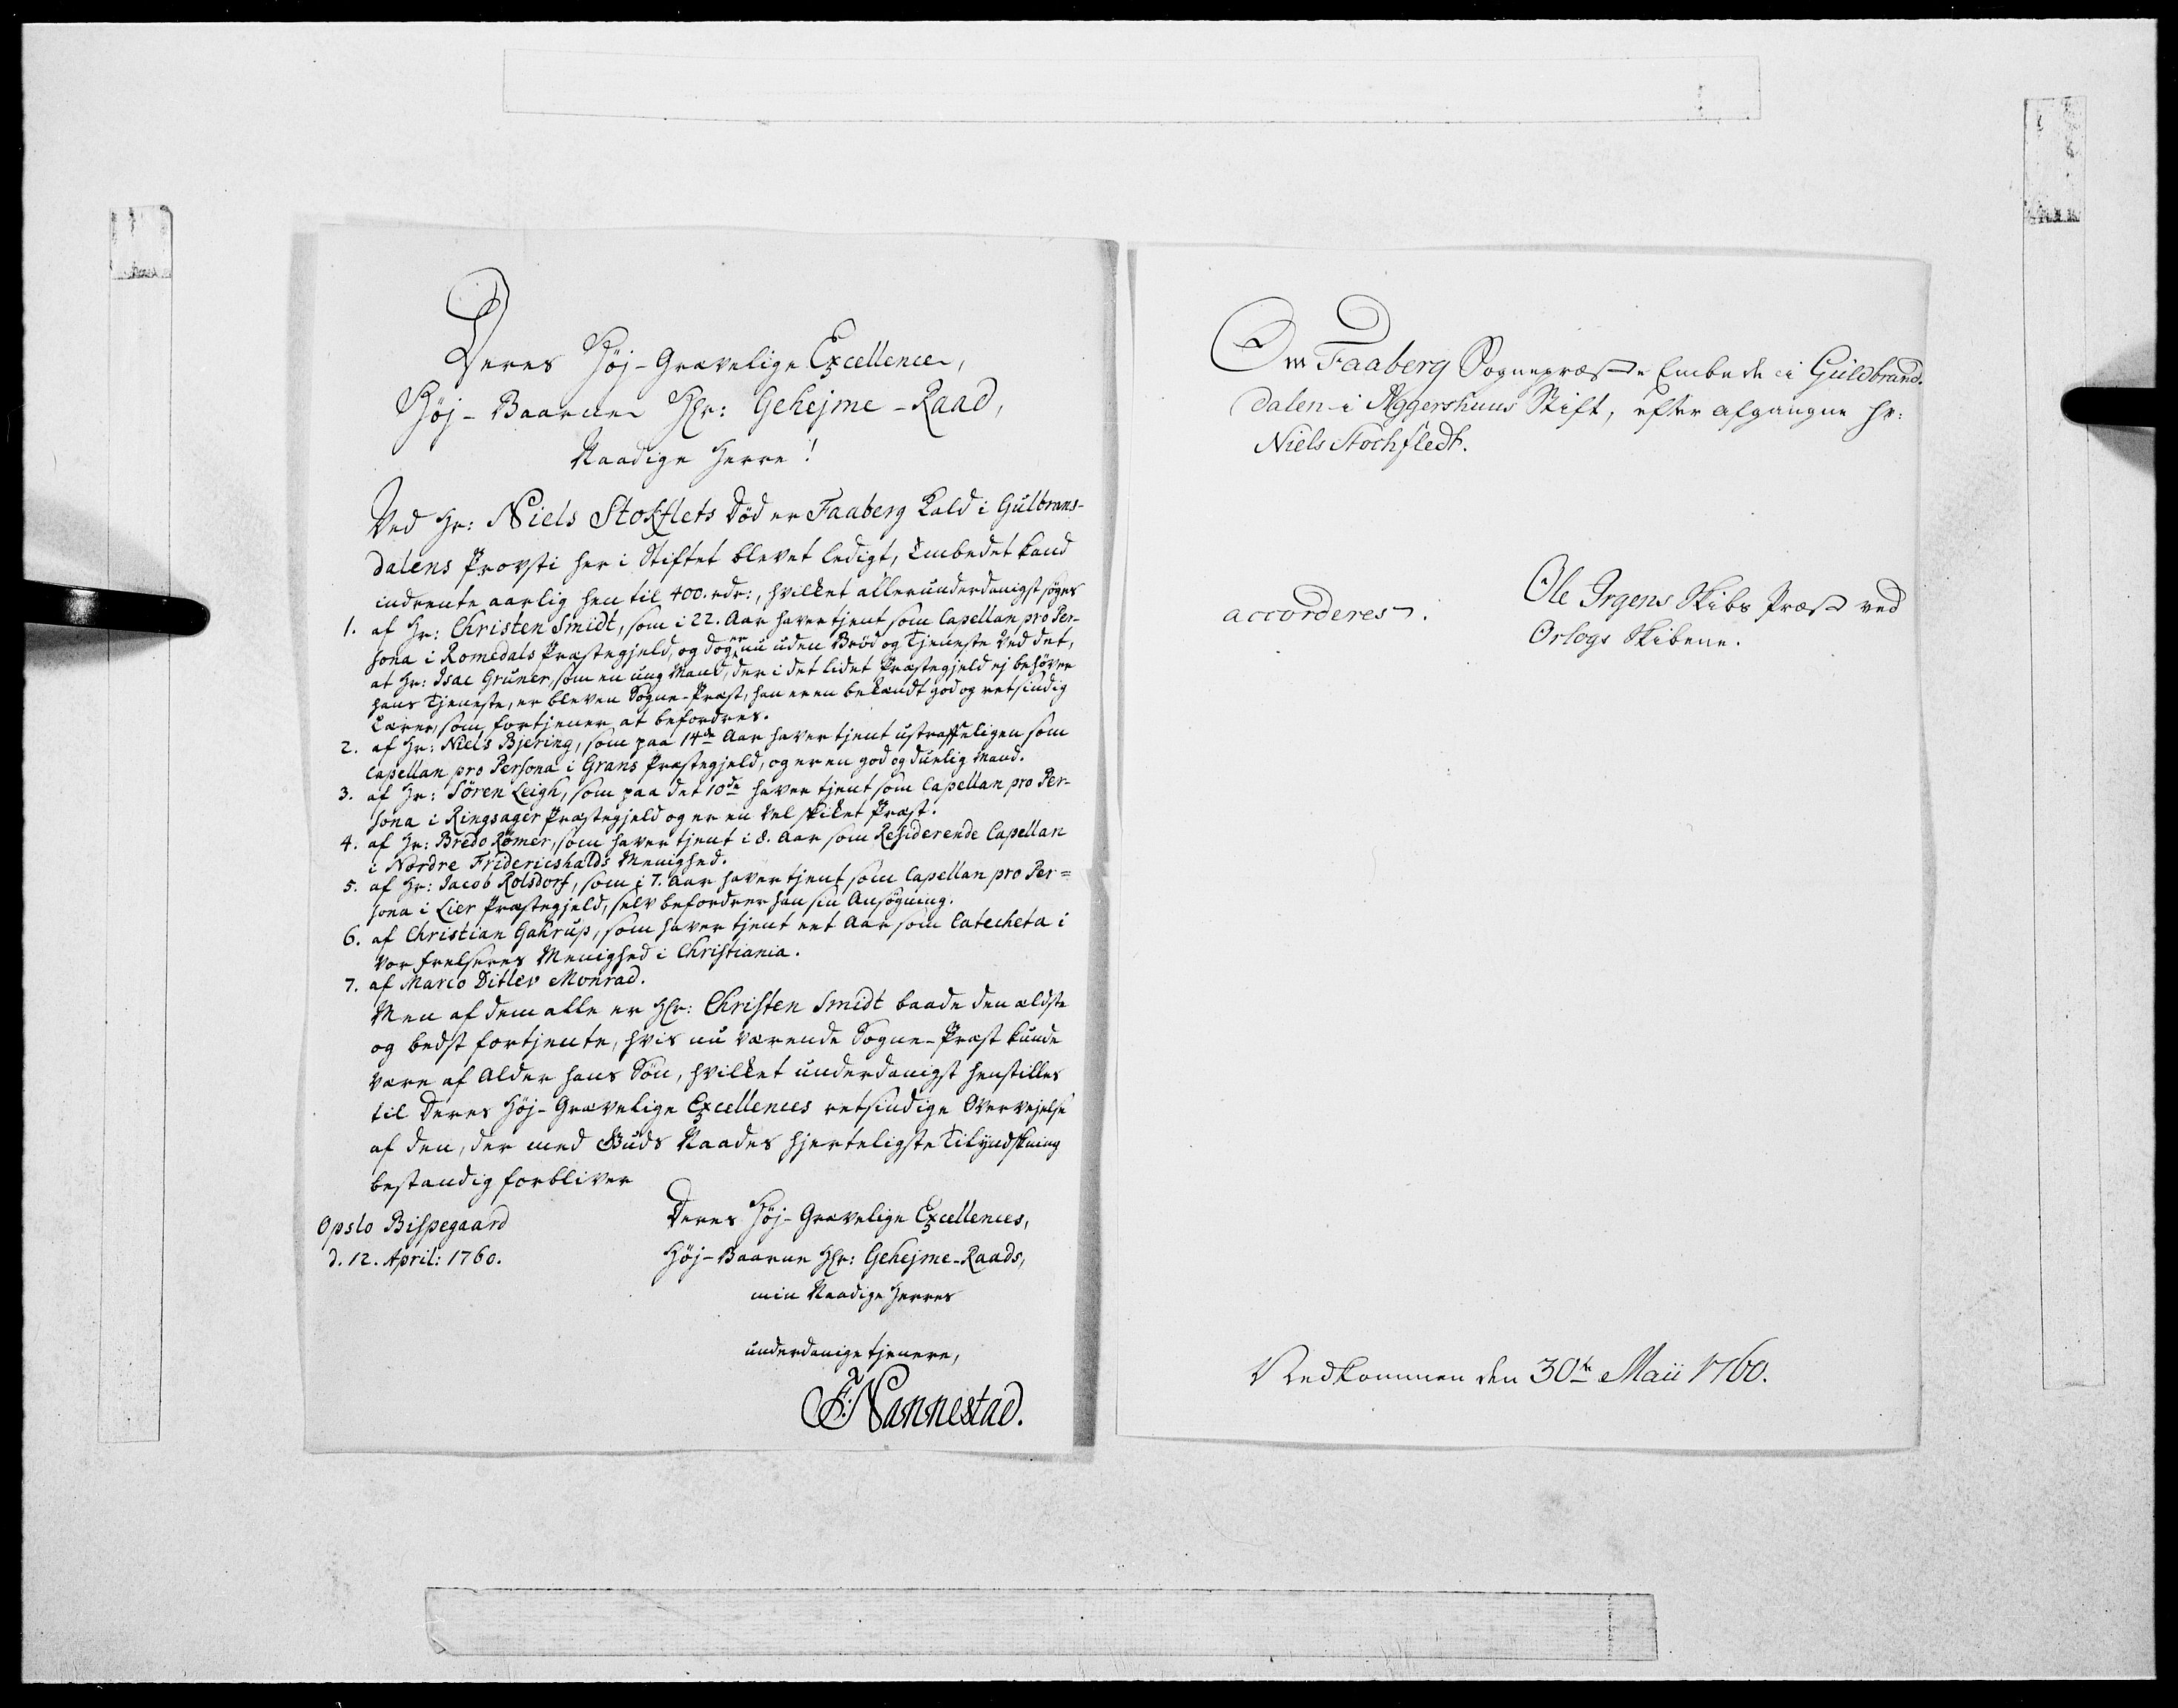 Deres Høj-Grævelige Excellence,
Høj-Baarne Hr: Gehejme-Raad,
Naadige Herre!
Ved Hr: Niels Stokflets Død er Faaberg Kald i Gulbrans-
dalens Provsti her i Stiftet blevet ledigt, Embedet kand
indrente aarlig hen til 400. rdr:, hvilket allerunderdanigst søges
1. af Hr: Christen Smidt, som i 22. Aar haver tjent som Capellan pro Per-
sona i Romedals Præstegjeld, og dog er nu uden Brød og Tjeneste ved det,
at Hr: Isac Grüner, som en ung Mand, der i det lidet Præstegjeld ej behøver
hans Tjeneste, er bleven Sogne-Præst, han er en bekandt god og retsindig
Lærer, som fortjener at befordres.
2. af Hr: Niels Bjering, som paa 14de Aar haver tjent ustraffeligen som
Capellan pro Persona i Grans Præstegjeld, og er en god og duelig Mand.
3. af Hr: Søren Leigh, som paa det 10de haver tjent som Capellan pro Per-
sona i Ringsager Præstegjeld og er en vel skiket Præst.
4. af Hr: Bredo Rømer, som haver tjent i 8. Aar som Residerende Capellan
i Nordre Fridericshalds Menighed.
5. af Hr: Jacob Rolsdorf, som i 7. Aar haver tjent som Capellan pro Per=
sona i Lier Præstegjeld, selv befordrer han sin Ansøgning.
6. af Christian Gahrup, som haver tjent eet Aar som Catecheta i
Vor Frelseres Menighed i Christiania.
7. af Marco Ditlev Monrad.
Men af dem alle er Hr: Christen Smidt baade den ældste
og bedst fortjente, hvis nu værende Sogne-Præst kunde
være af Alder hans Søn, hvilket underdanigst henstilles
til Deres Høj-Grævelige Excellences retsindige Overvejelse
af den, der med Guds Naades hjerteligste Tilyndskning
bestandig forbliver
Deres Høj-Grævelige Excellences,
Høj-Baarne Hr: Gehejme-Raads,
min Naadige Herres
underdanige tjenere,
F. Nannestad.
Opslo Bispegaard
d. 12. April: 1760.
Om Faaberg Sognepræste Embede i Guldbrand-
dalen i Aggershuus Stift, efter afgangne Hr:
Niels Stochfledt.
accorderes.
Ole Irgens Skibs Præst ved
Orlogs Skibene.
Nedkommen den 30te Maii 1760.